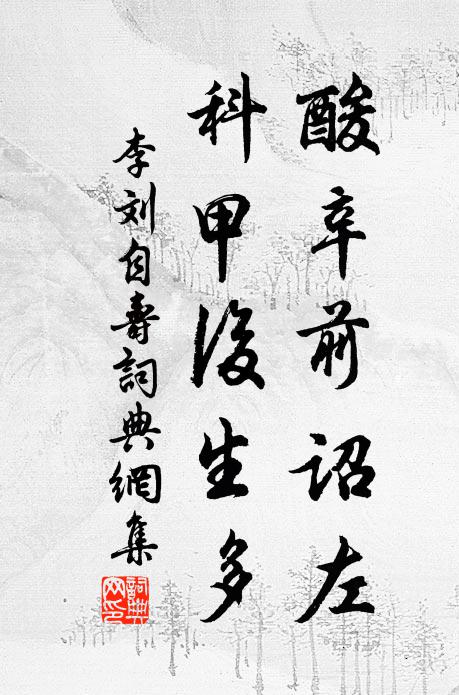 酸辛前诏左
科甲後生多
李刘自壽詞典網集
詞典網印